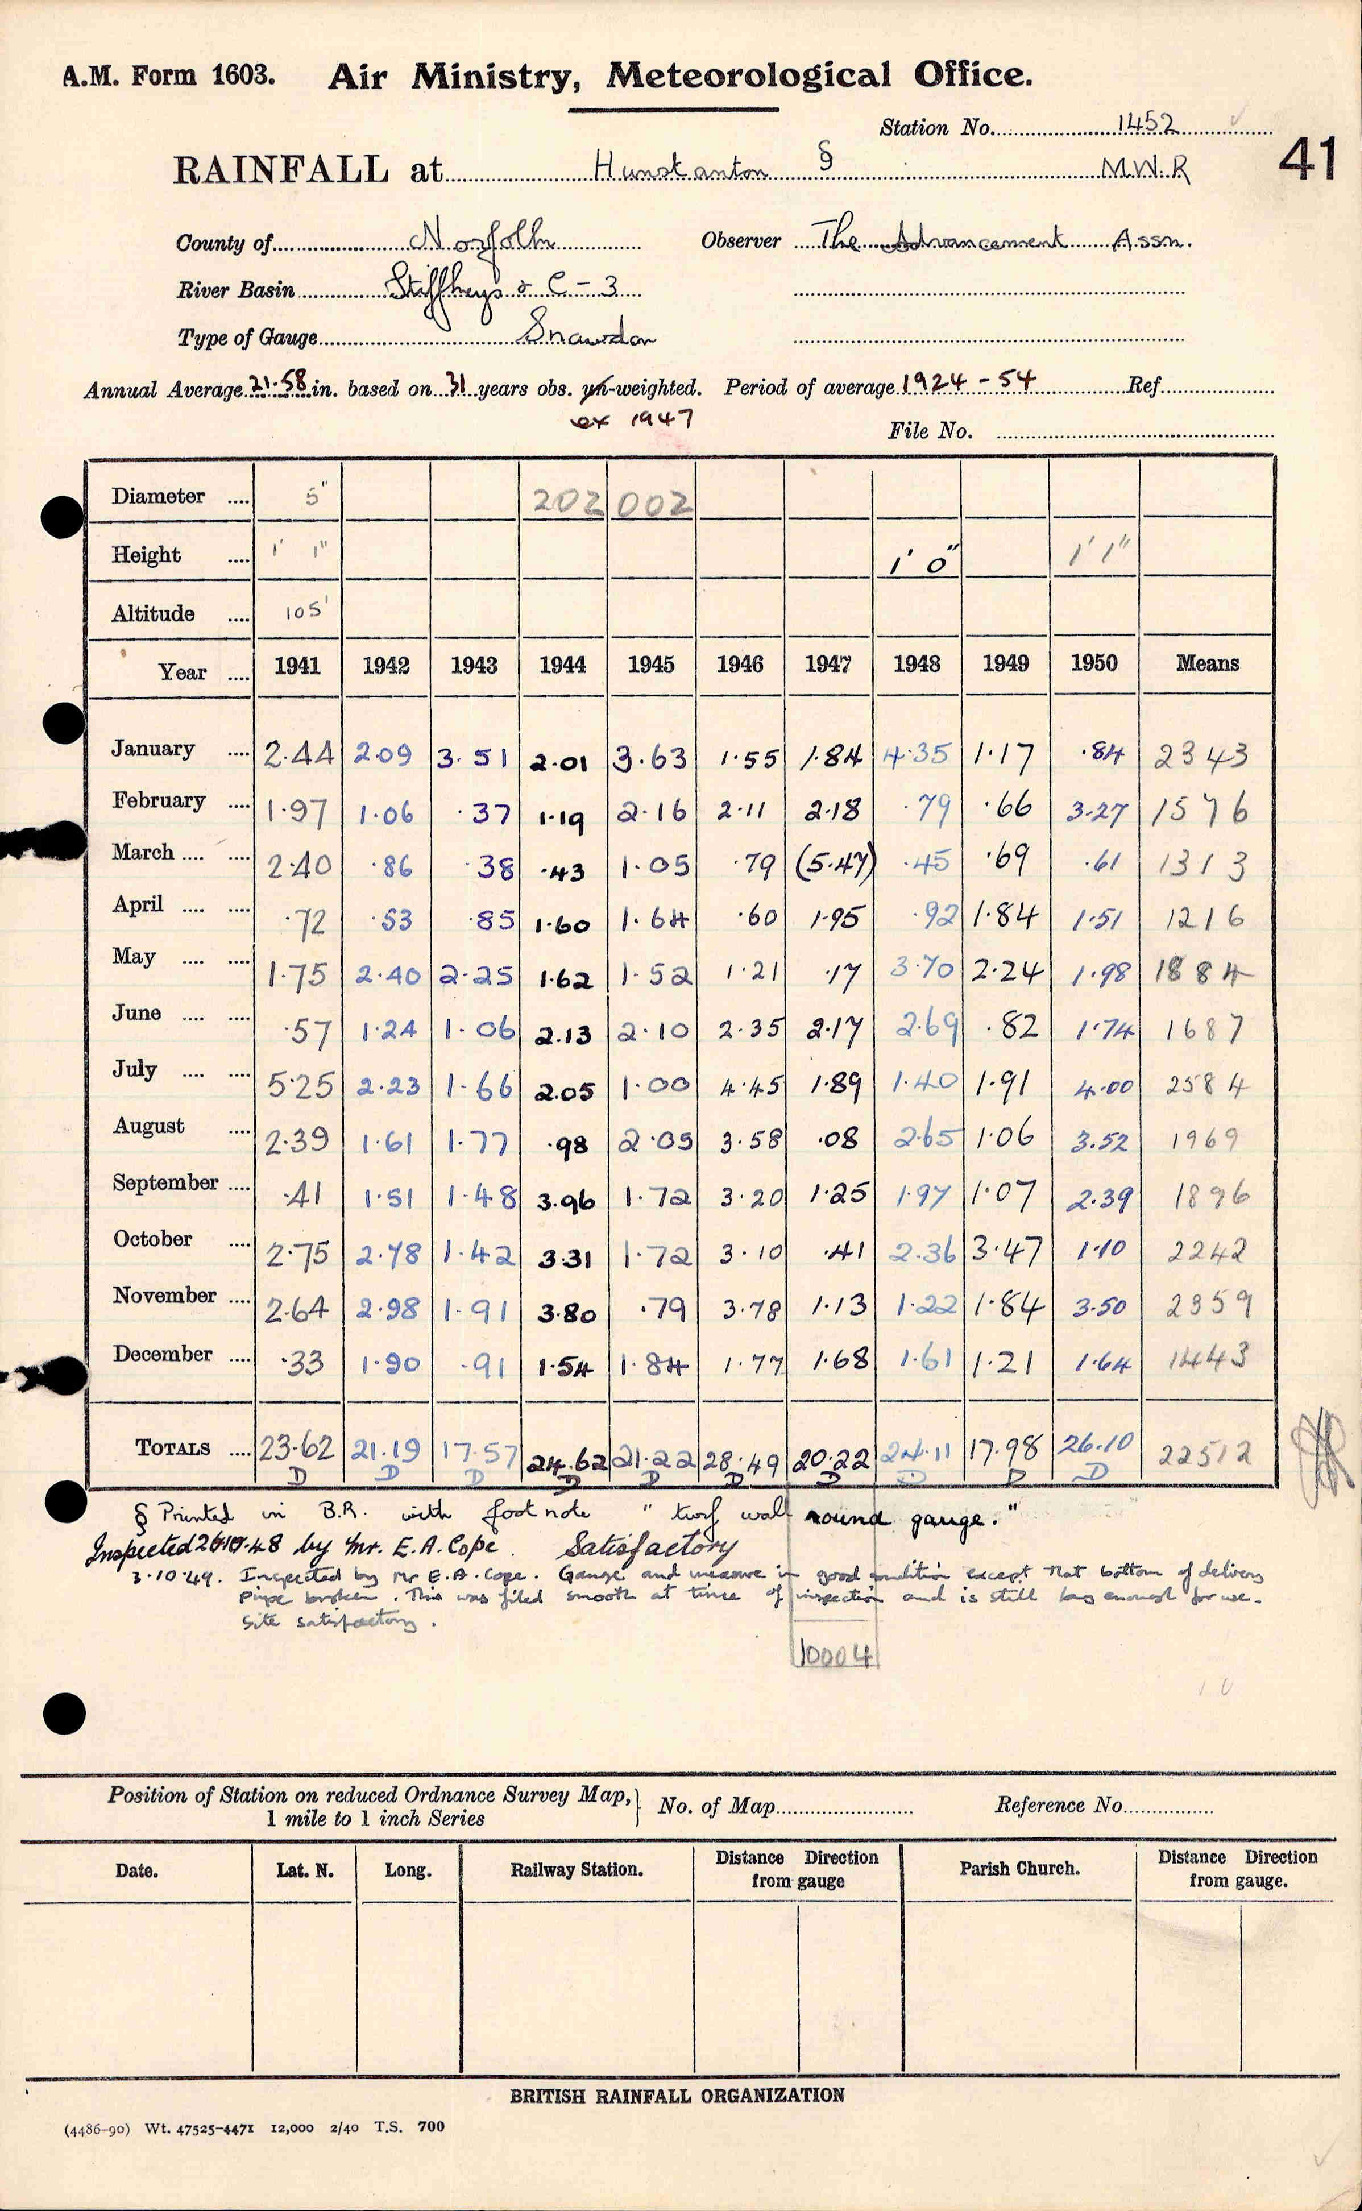 A.M. Form 1603. Air Ministry, Meteorological Office.
Station No. 1452
41
RAINFALL at Hunstanton § M.W.R
County of Norfolk Observer The Advancement Assn.
River Basin Stiffkey & C-3
Type of Gauge Snowdon
Annual Average 21.58 in. based on 31 years obs. un-weighted. Period of average 1924-54 Ref.
ex 1947
File No.
Diameter .... 5" 202 002
Height .... 1' 1" 1' 0" 1' 1"
Altitude .... 105'
Year .... 1941 1942 1943 1944 1945 1946 1947 1948 1949 1950 Means
January .... 2.44 2.09 3.51 2.01 3.63 1.55 1.84 4.35 1.17 .84 2343
February .... 1.97 1.06 .37 1.19 2.16 2.11 2.18 .79 .66 3.27 1576
March .... .... 2.40 .86 .38 .43 1.05 .79 (5.47) .45 .69 .61 1313
April .... .... .72 .53 .85 1.60 1.64 .60 1.95 .92 1.84 1.51 1216
May .... .... 1.75 2.40 2.25 1.62 1.52 1.21 .17 3.70 2.24 1.98 1884
June .... .... .57 1.24 1.06 2.13 2.10 2.35 2.17 2.69 .82 1.74 1687
July .... .... 5.25 2.23 1.66 2.05 1.00 4.45 1.89 1.40 1.91 4.00 2584
August .... 2.39 1.61 1.77 .98 2.05 3.58 .08 2.65 1.06 3.52 1969
September .... .41 1.51 1.48 3.96 1.72 3.20 1.25 1.97 1.07 2.39 1896
October .... 2.75 2.78 1.42 3.31 1.72 3.10 .41 2.36 3.47 1.10 2242
November .... 2.64 2.98 1.91 3.80 .79 3.78 1.13 1.22 1.84 3.50 2359
December .... .33 1.90 .91 1.54 1.84 1.77 1.68 1.61 1.21 1.64 1443
TOTALS .... 23.62 21.19 17.57 24.62 21.22 28.49 20.22 24.11 17.98 26.10 22512
D D D D D D D D D D
§ Printed in B.R. with footnote "turf wall round gauge."
Inspected 26.10.48 by Mr. E.A. Cope. Satisfactory
3.10.49. Inspected by Mr E.A. Cope. Gauge and measure in good condition except that bottom of delivery
pipe broken. This was filed smooth at time of inspection and is still long enough for use.
Site satisfactory.
10004
10
Position of Station on reduced Ordnance Survey Map,
1 mile to 1 inch Series
No. of Map Reference No
Date. Lat. N. Long. Railway Station. Distance Direction from gauge Parish Church. Distance Direction from gauge.
BRITISH RAINFALL ORGANIZATION
(4486-90) Wt. 47525-4471 12,000 2/40 T.S. 700